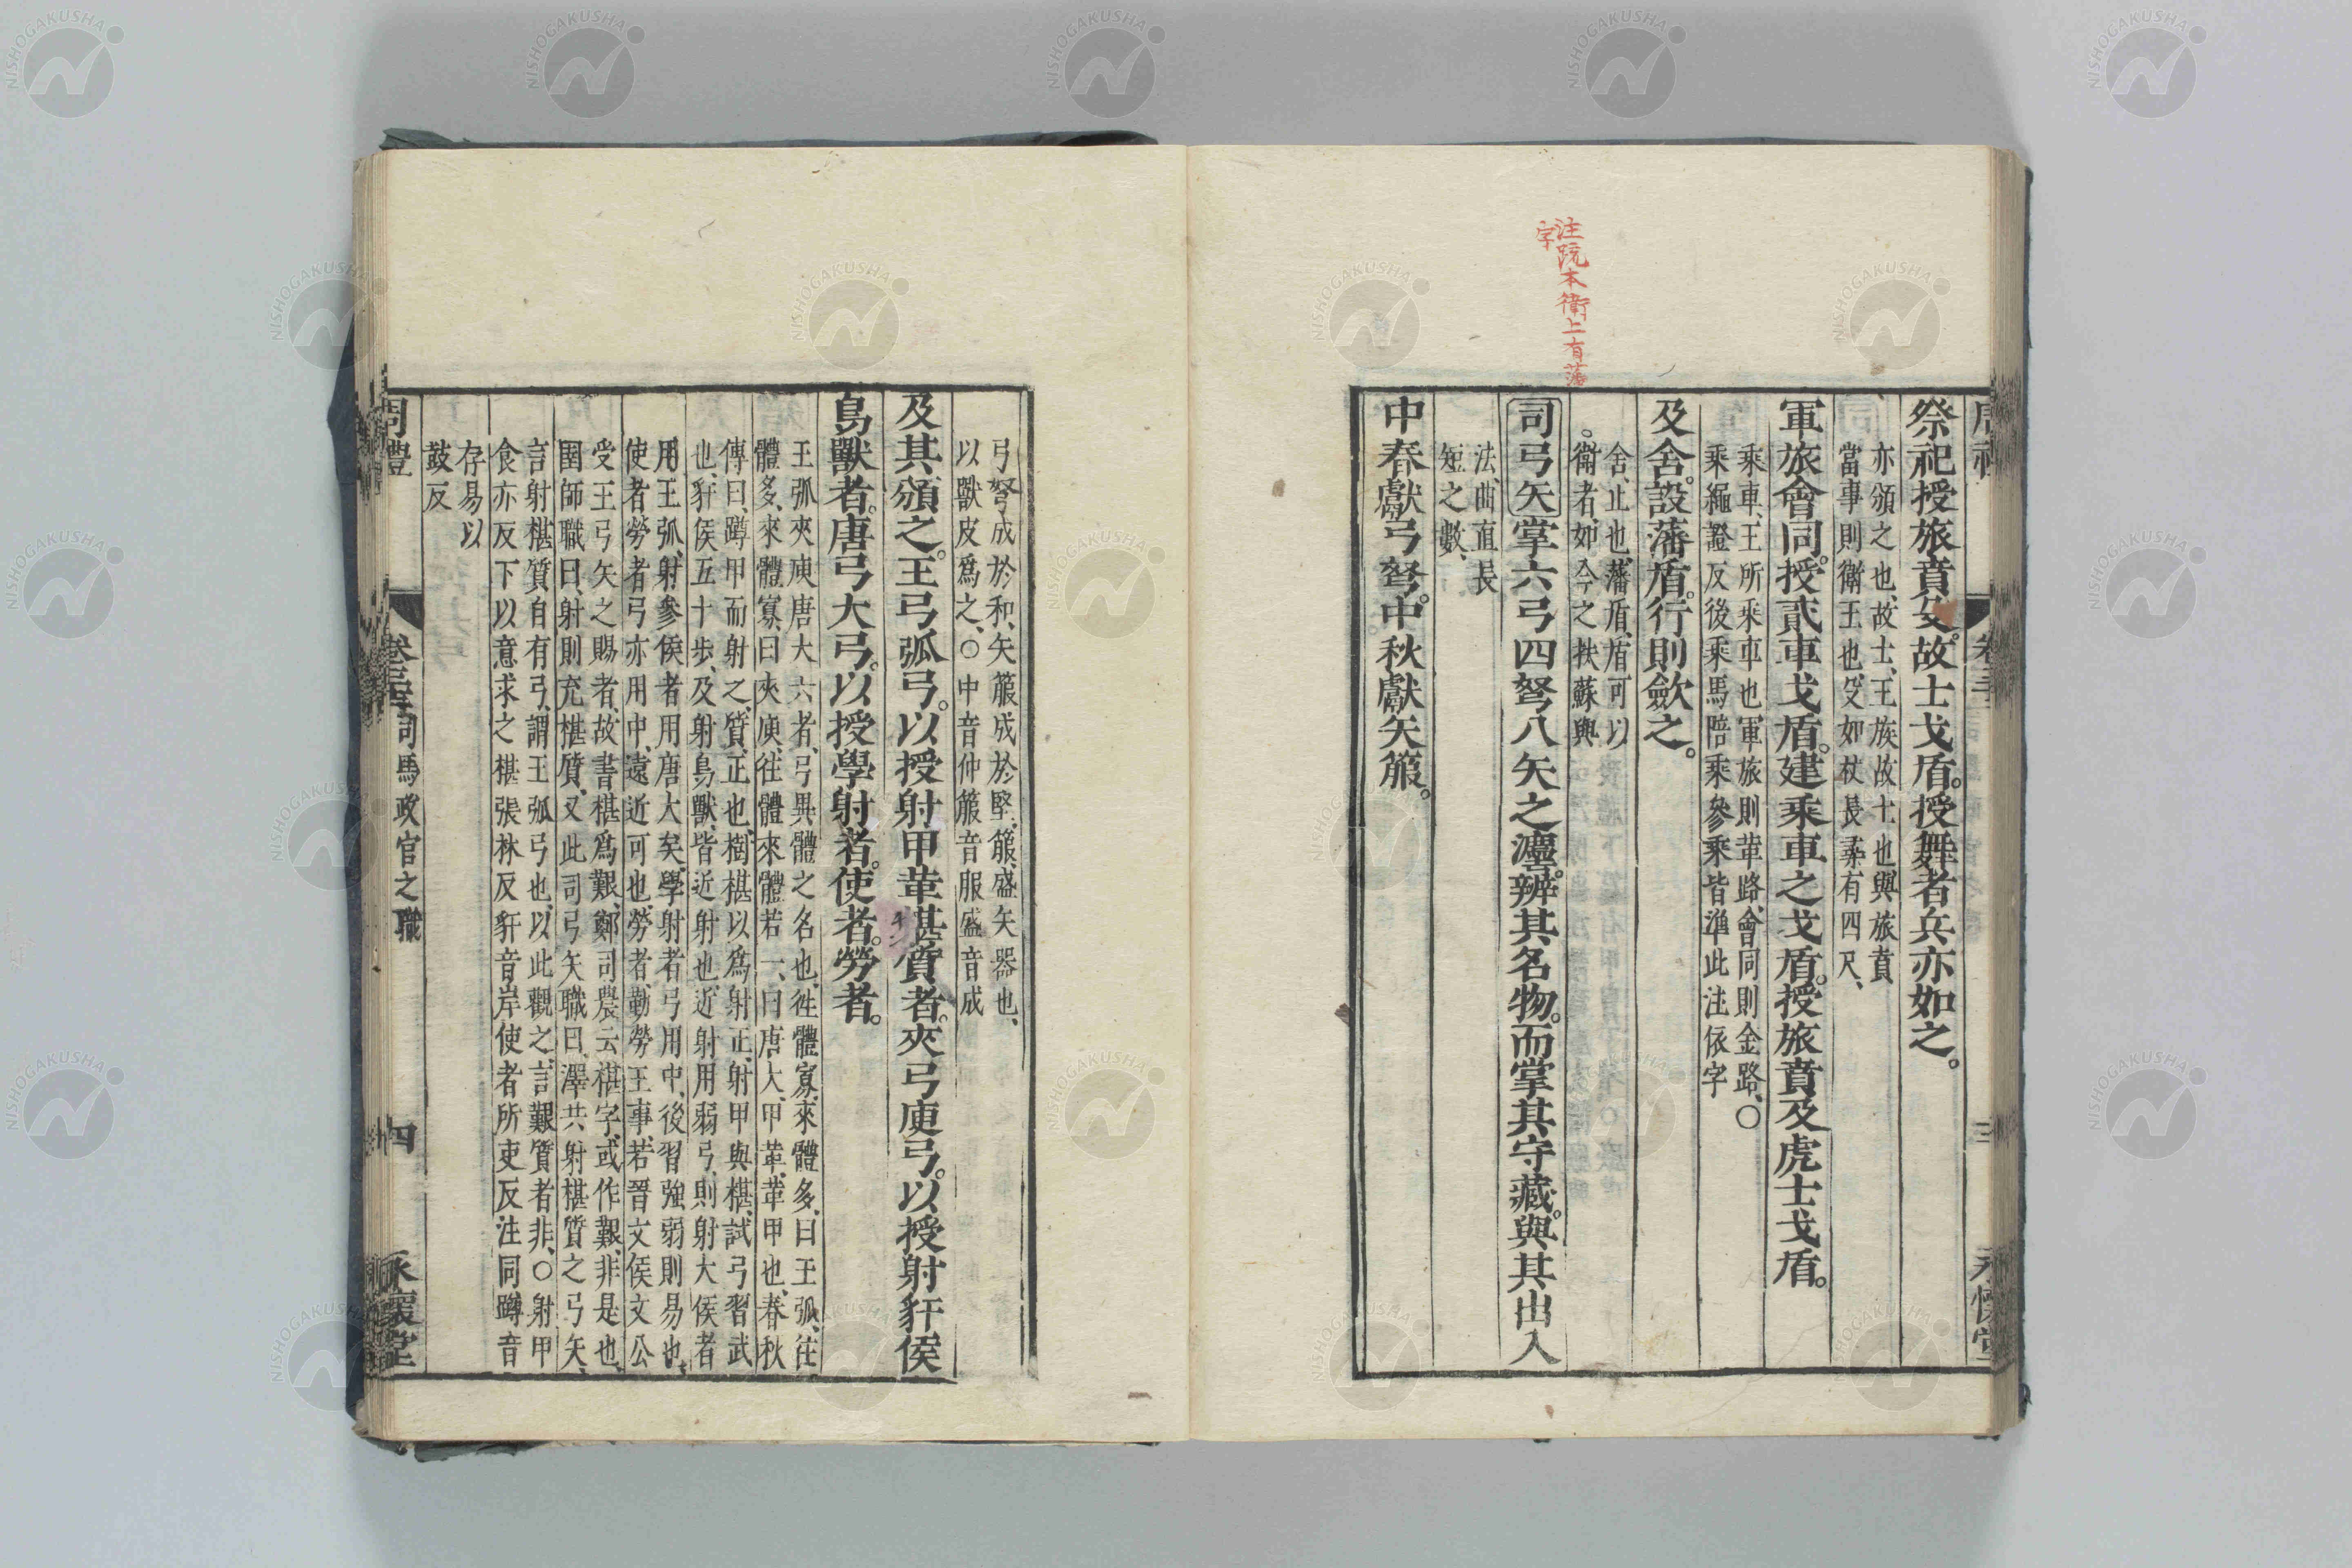 注阮本衛上有藩
字
祭祀授旅賁殳。故士戈盾。授舞者兵亦如之。
亦頒之也、故士、王族故士也、與旅賁
當事則衛王也、殳如杖、長尋有四尺、
軍旅會同。授貳車戈盾。建乘車之戈盾。授旅賁及虎士戈盾。
乘車、王所乘車也、軍旅則革路、會同則金路、○
乘繩證反後乘馬陪乘參乘皆準此注依字
及舍。設藩盾。行則斂之。
舍、止也、藩盾、盾可以
衛者、如今之扶蘇與
司弓矢掌六弓四弩八矢之灋。辨其名物。而掌其守藏。與其出入
法、曲直長
短之數、
中春獻弓弩。中秋獻矢箙。
弓弩成於和、矢箙成於堅、箙、盛矢器也、
以獸皮爲之、○中音仲箙音服盛音成
及其頒之。王弓弧弓。以授射甲革椹質者。夾弓庾弓。以授射豻侯
鳥獸者。唐弓大弓。以授學射者。使者。勞者。
王弧夾庾唐大六者、弓異體之名也、往體寡、來體多、曰王弧、往
體多、來體寡、曰夾庾、往體來體若一、曰唐大、甲革、革甲也、春秋
傳曰、蹲甲而射之、質、正也、樹椹以爲射正、射甲與椹、試弓習武
也、豻侯五十步、及射鳥獸、皆近射也、近射用弱弓、則射大侯者
用王弧、射參侯者用唐大矣、學射者弓用中、後習強弱則易也、
使者勞者弓亦用中、遠近可也、勞者、勤勞王事、若晉文侯文公
受王弓矢之賜者、故書椹爲艱、鄭司農云、椹字、或作艱、非是也、
圉師職曰、射則充椹質、又此司弓矢職曰、澤共射椹質之弓矢、
言射椹質自有弓、謂王弧弓也、以此觀之、言艱質者非、○射甲
食亦反下以意求之椹張林反豻音岸使者所吏反注同蹲音
存易以
豉反
周禮
卷三十二 司馬政官之職
四
永懷堂